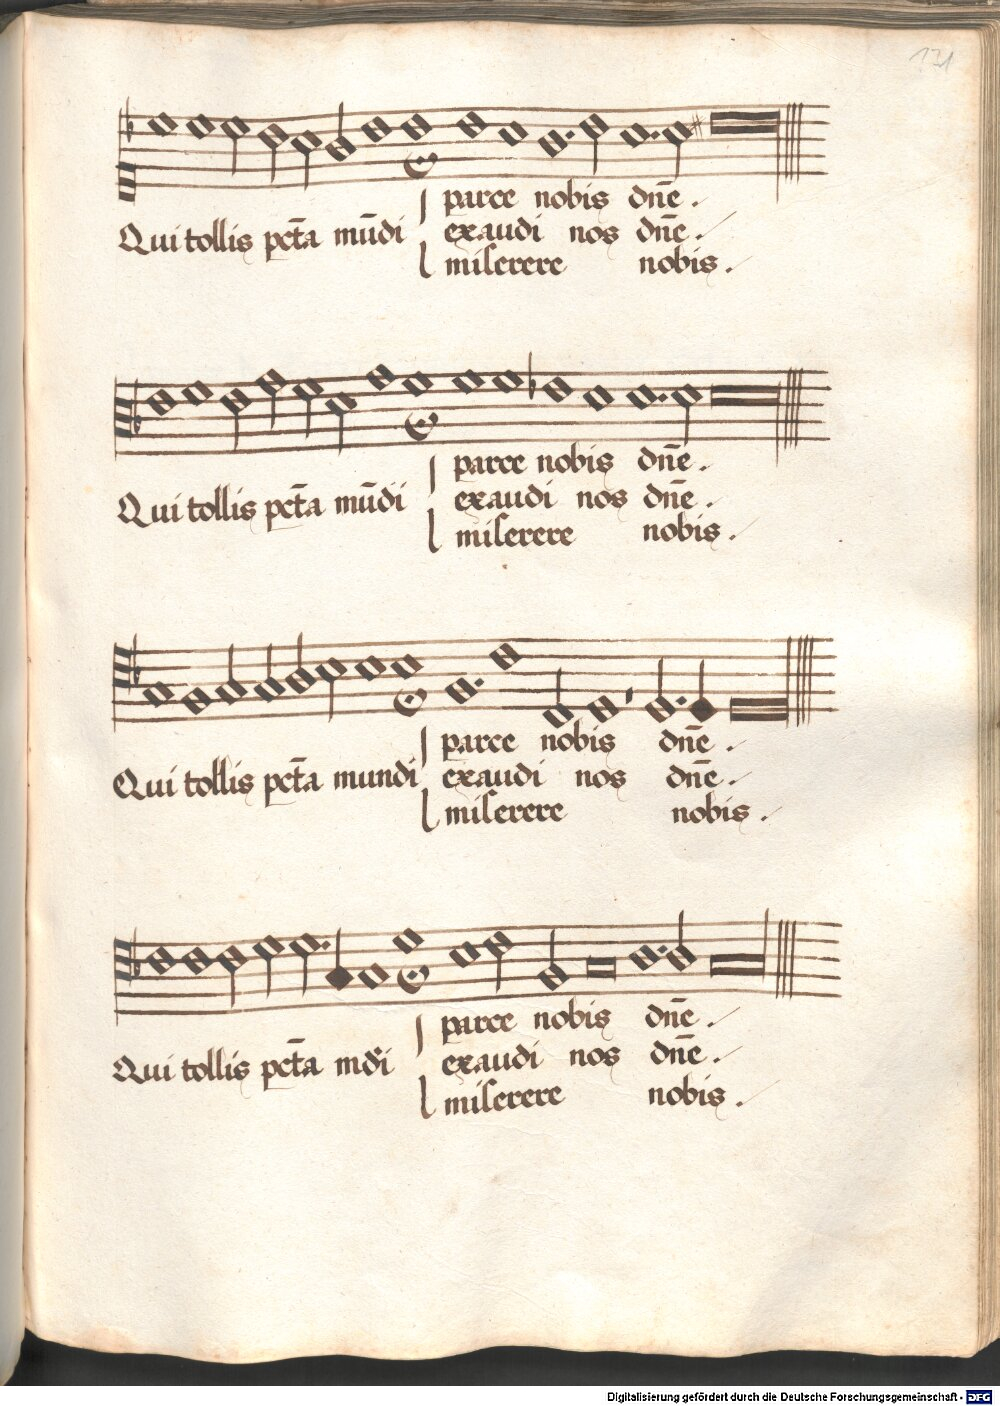 131
parce nobis dn̄e.
Qui tollis pct̄a mūdi exaudi nos dn̄e.
miserere nobis.
parce nobis dn̄e.
Qui tollis pct̄a mūdi exaudi nos dn̄e.
miserere nobis.
parce nobis dn̄e.
Qui tollis pct̄a mundi exaudi nos dn̄e.
miserere nobis.
parce nobis dn̄e.
Qui tollis pct̄a mdi exaudi nos dn̄e.
miserere nobis.
Digitalisierung gefördert durch die Deutsche Forschungsgemeinschaft - DFG